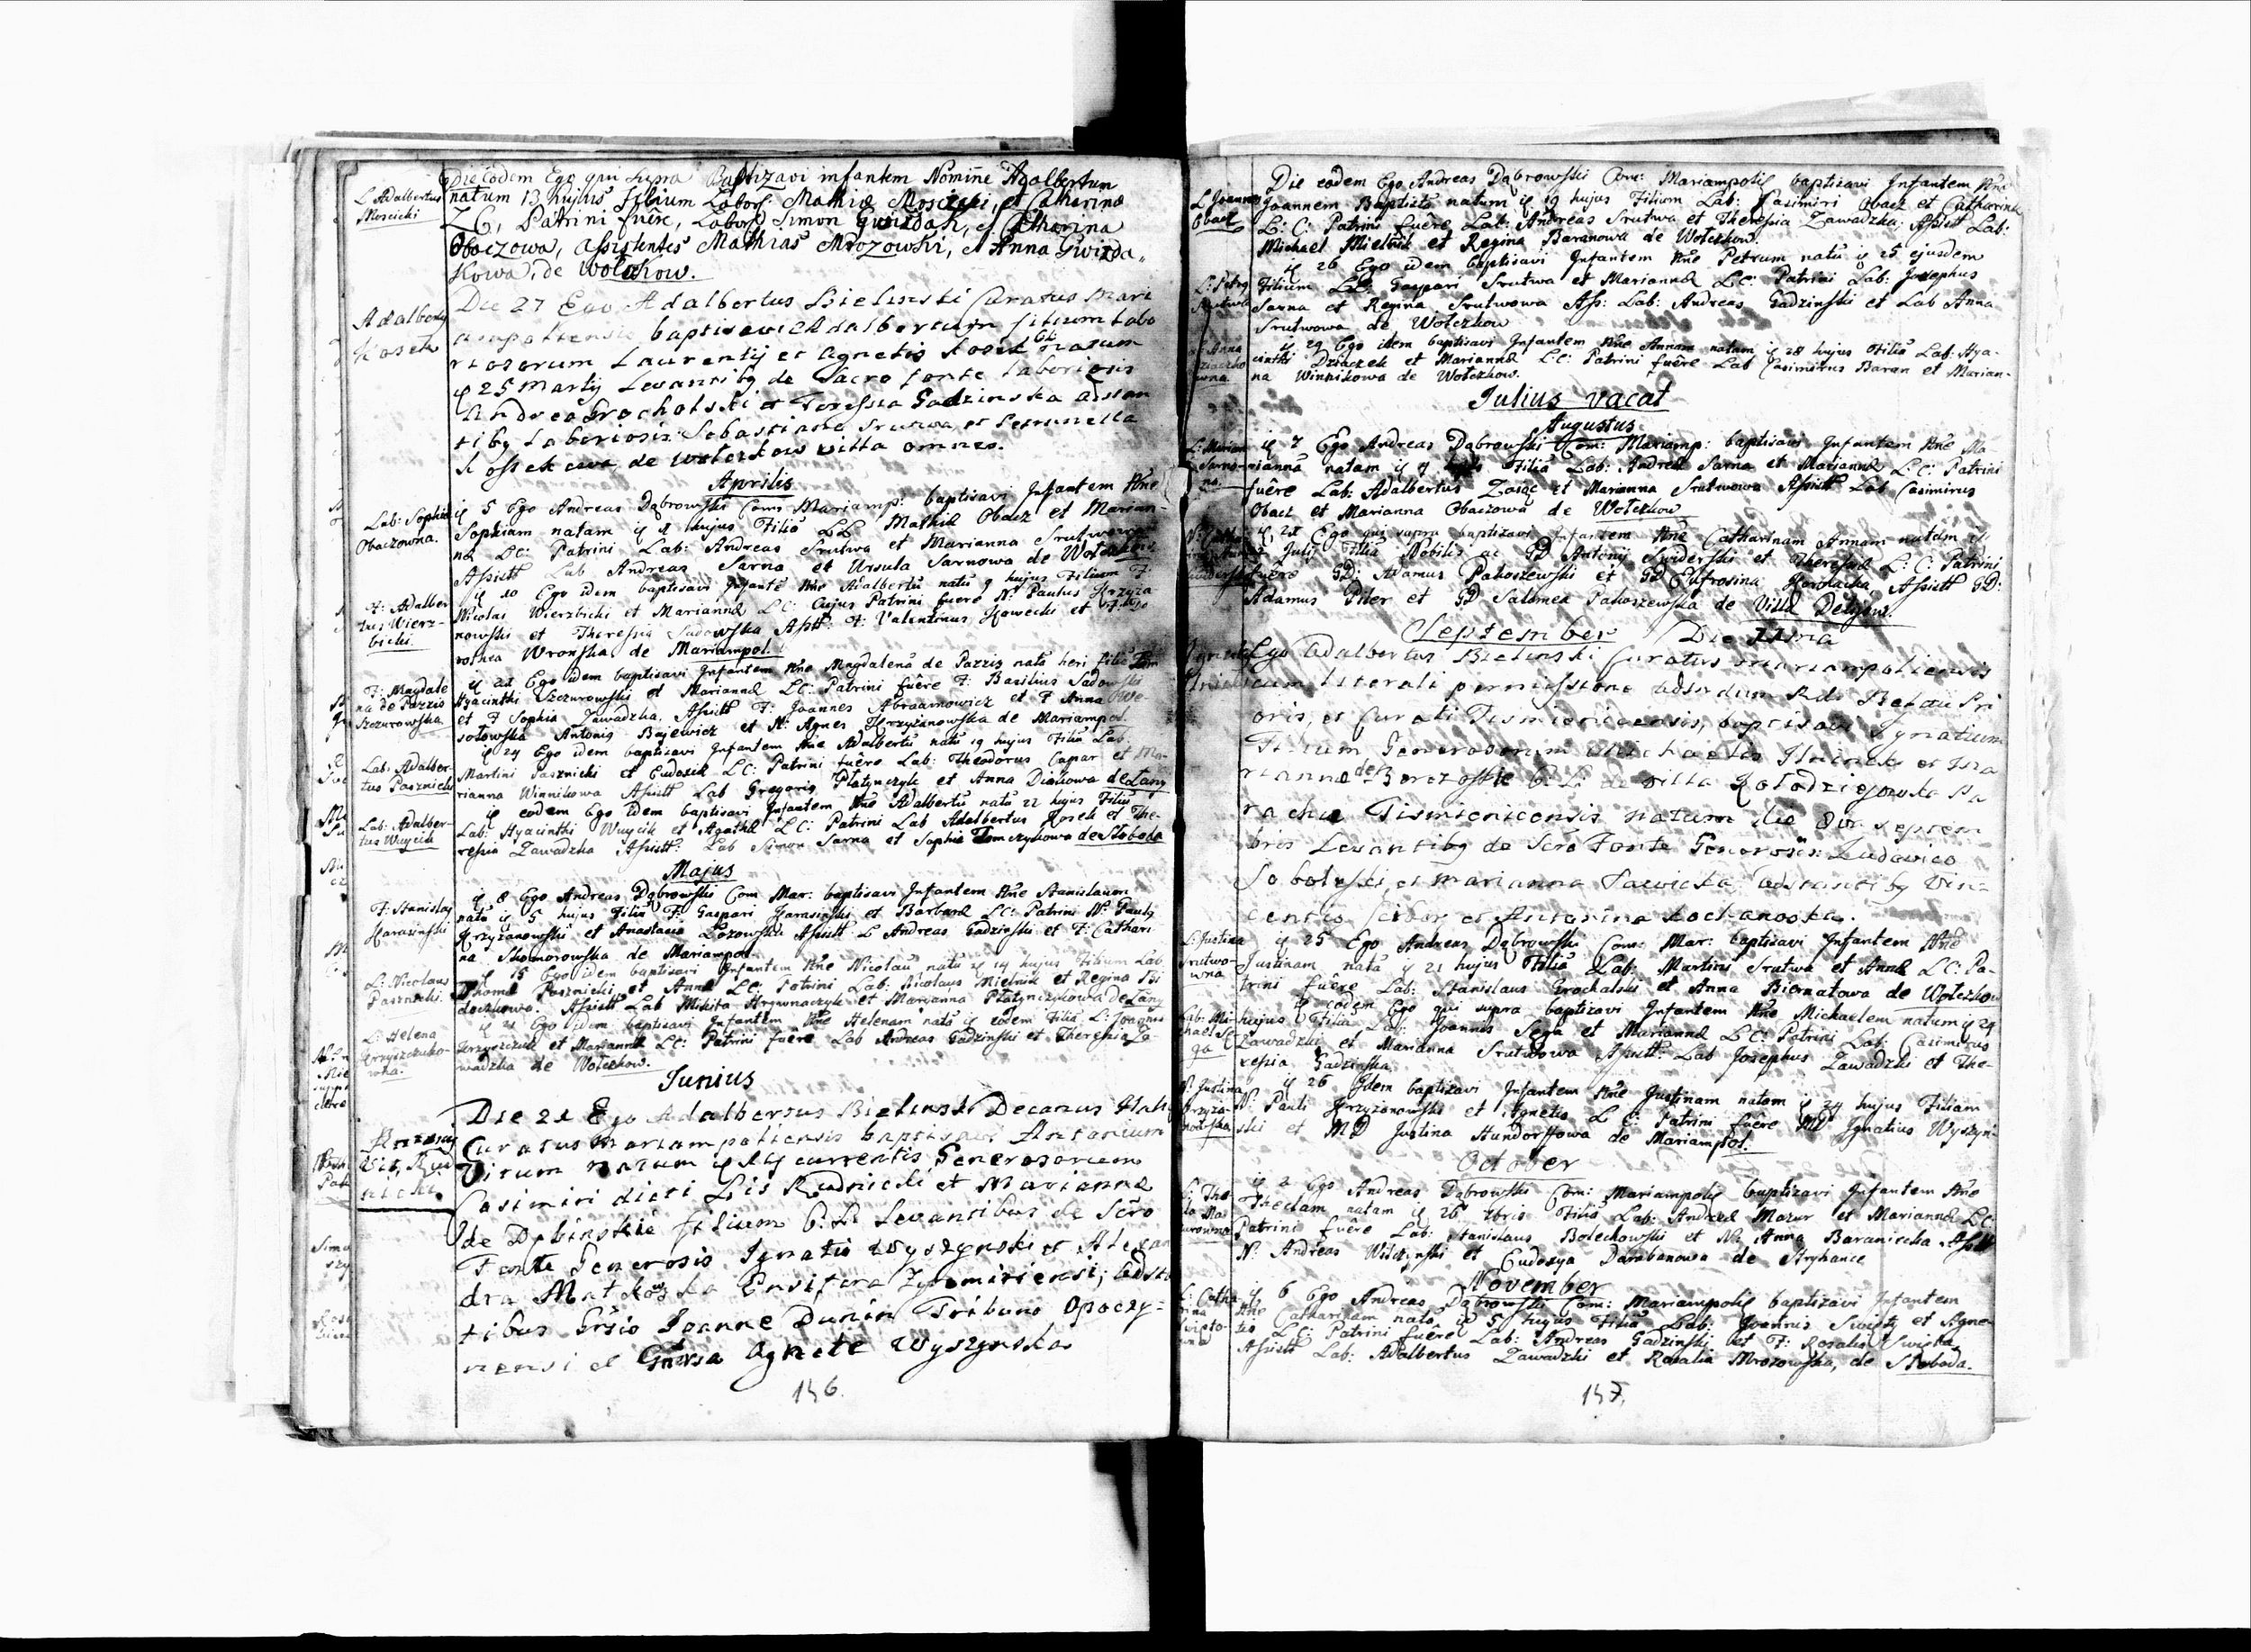 Die Eodem Ego qui supra Baptizavi infantem Nomine Adalbertum
L Adalbertus Moscicki
natum 13 hujus Filium Labors: Mathiæ Moscicki, et Catherinæ
L C, Patrini fuere, Labors Simon Gwizdak, et Catharina
Obaczowa, Assistentes Mathias Mrozowski, et Anna Gwizda„
kowa, de Wołczkow.
Adalbertus Kosek
Die 27 Ego Adalbertus Bielinski Curatus Mari
ampoliensis baptisavi Adalbertum filium labo
riosorum Laurentij et Agnetis Kosek CL natum
ij 25 Martij Levantibg de Sacro fonte laboriosis
Andrea Grocholski et Teressia Gadzinska adstan
tibg laboriosis Sebastiano Srutwa et Petrunella
Kossekowa de Wołczkow villa omnes.
Aprilis
Lab: Sophia Obaczowna.
ij 5 Ego Andreas Dąbrowski Com: Mariamp: baptisavi Infantem Nne
Sophiam natam ij 4 hujus Filiã LL Mathiæ Obacz et Marian-
næ LC: Patrini Lab: Andreas Srutwa et Marianna Srutwowa
Assistt Lab Andreas Sarna et Ursula Sarnowa de Wołczkow
F: Adalber tus Wierz- bicki.
ij 10 Ego idem baptisavi Infantẽ Nne Adalbertũ natũ 9 hujus Filium F:
Nicolai Wierzbicki et Mariannæ LC: Cujus Patrini fuere N: Paulus Krzyża
nowski et Theressia Sadowska Asstt: F: Valentinus Nowecki et F: Do
rothea Wronska de Mariampol.
F: Magdale na de Pazzis Szczurowska.
ij 22 Ego idem baptisavi Infantem Nne Magdalenã de Pazzis natã heri filiã Fam
Hyacinthi Szczurowski et Mariannæ LC: Patrini fuêre F: Basilius Sadowski
et F Sophia Zawadzka, Assistt F: Joannes Abraamowicz et F Anna We
sołowska Antonius Bajewicz et N: Agnes Krzyżanowska de Mariampol.
Lab: Adalber- tus Pasznicki
ij 24 Ego idem baptisavi Infantem Nne Adalbertũ natũ 19 hujus Filiũ Lab:
Martini Pasznicki et Eudosiæ LC: Patrini fuêre Lab: Theodorus Capar et Ma-
rianna Winnikowa Assistt Lab Gregoris Płatynczyk et Anna Diakowa de Łany
Lab: Adalber- tus Wuycik
ij eodem Ego idem baptisavi Infantem Nne Adalbertũ natũ 22 hujus Filiũ
Lab: Hyacinthi Wuycik et Agathæ LC: Patrini Lab Adalbertus Kosek et The-
ressia Zawadzka Assistt: Lab Simon Sarna et Sophia Tomczykowa de Słoboda
Majus
F: Stanislaus Harasinski
ij 8 Ego Andreas Dąbrowski Com Mar: baptisavi Infantem Nne Stanislaum
natũ ij 5 hujus Filiũ F: Gaspari Harasinski et Barbaræ LC: Patrini N: Paulus
Krzyżanowski et Anastasia Łozowska Assistt L Andreas Gadzinski et F: Cathari
na Skomorowska de Mariampol.
L: Nicolaus Pasznicki.
ij 15 Ego idem baptisavi Infantem Nne Nicolaũ natũ ij 14 hujus Filium Lab
Thomæ Pasznicki et Annæ LC: Patrini Lab: Nicolaus Mielnik et Regina
Assistt Lab Mikita Hrywnaczyk et Marianna Płatynczykowa de Łany
L: Helena Grzyszczuko- wna.
ij 21 Ego idem baptisavi Infantem Nne Helenam natã ij eodem Filiã L: Joannis
Grzyszczuk et Mariannæ LC: Patrini fuêre Lab Andreas Gadzinski et Theressia Za
wadzka de Wołczkow.
Junius
Antonius Vit, Rud nicki.
Die 21 Ego Adalbertus Bielinski Decanus Hali
Curatus Mariampoliensis baptisavi Antonium
Vitum natum ij currentis Generosorum
Casimiri dicti Lis Rudnicki et Mariannæ
de Dębinskie filium C. L. Levantibus de Scro
Fonte Generosis Ignatio Wyszynski et Alexan
dra Matkowska Ensifera Zytomiriensi; Adstan
tibus Grsio Joanne Dunin Tribuno Opoczy=
nensi et Gnersa Agnete Wyszynska
146.
Die eodem Ego Andreas Dąbrowski Com: Mariampolis baptisavi Infantem Nne
L Joannes Obacz
Joannem Baptistã natum ij 19 hujus Filium Lab: Casimiri Obacz et Catharinæ
L: C: Patrini fuêre Lab: Andreas Srutwa et Theressia Zawadzka; Assistt Lab:
Michael Mielnik et Regina Baranowa de Wołczkow.
L: Petrus Srutwa
ij 26 Ego idem baptisavi Infantem Nne Petrum natũ ij 25 ejusdem
Filium LL: Gaspari Srutwa et Mariannæ LC: Patrini Lab: Josephus
Sarna et Regina Srutwowa Ass: Lab: Andreas Gadzinski et Lab Anna
Srutwowa de Wołczkow
Anna Dziaczko wna
ij 29 Ego idem baptisavi Infantem Nne Annam natam ij 28 hujus Filiã Lab: Hya-
cinthi Dziaczek et Mariannæ LC: Patrini fuêre Lab Casimirus Baran et Marian-
na Winnikowa de Wołczkow.
Julius vacat
Augustus
L: Marian Sarno- na.
ij 7 Ego Andreas Dąbrowski Com: Mariamp: baptisavi Infantem Nne Ma-
riannã natam ij Filiã Lab: Andreæ Sarna et Mariannæ LC: Patrini
fuêre Lab: Adalbertus Zaiąc et Marianna Srutwowa Assistt Lab Casimirus
Obacz et Marianna Obaczowa de Wołczkow
ij 21 Ego qui supra baptisavi Infantem Nne Catharinam Annam natam
Julij Filiã Nobilis ac GD Antonij Swiderski et Theressiæ L: C: Patrini
fuêre GD: Adamus Pakoszewski et GD Eufrosina Assistt GD:
Adamus Piler et GD Salomea Pakoszewska de Villa Delijow.
September Die 11ma
Ego Adalbertus Bielinski Curatus Mariampoliensis
cum literali permissione Rdi Pri
oris, et Curati Tismienicensis, baptisavi Ignatium
Filium Generosorum Michaelis et Ma
riannæ de C: L: de villa Kołodziejowka Pa
rachia Tismienicensis natum die Septem
bris Levantibg de Scro Fonte Generosis: Ludovico
Sobolski, et Marianna Sawicka, adstantibg Vin=
centio et Antonina Kochanoska.
L: Justina Srutwo- wna
ij 25 Ego Andreas Dąbrowski Com: Mar: baptisavi Infantem Nne
Justinam natã ij 21 hujus Filiã Lab: Martini Srutwa et Annæ LC: Pa-
trini fuêre Lab: Stanislaus Grochalski et Anna Biernatowa de Wołczkow
Lab: Mi- chael Se- ga
ij eodem Ego qui supra baptisavi Infantem Nne Michaelem natum ij 24
hujus Filiũ Lab: Joannis Sega et Mariannæ LC: Patrini Lab: Casimirus
Zawadzki et Marianna Srutwowa Assistt: Lab Josephus Zawadzki et The-
ressia Gadzinska
N: Justina Krzyża- nowska
ij 26 Idem baptisavi Infantem Nne Justinam natam ij 24 hujus Filiam
N: Pauli Krzyżanowski et Agnetis L C: Patrini fuêre MD Ignatius Wyszyn-
ski et MD Justina Hundorffowa de Mariampol.
October
L: The- cla Ma- zurowna
ij 2 Ego Andreas Dąbrowski Com: Mariampolis baptizavi Infantem Nne
Theclam natam ij 26 7bris Filiã Lab: Andreæ Mazur et Mariannæ LC:
Patrini fuêre Lab: Stanislaus Bolechowski et N: Anna Baraniecka Assistt
N: Andreas Wilczynski et Eudosya Dambanowa de Stryhance
November
L: Catha- rina
ij 6 Ego Andreas Dąbrowski Com: Mariampolis baptizavi Infantem
Nne Catharinam natã ij 5 hujus Filiã Lab: Joannis Swięty et Agne-
tis LC: Patrini fuêre Lab: Andreas Gadzinski et F: Rosalia Swięta,
Assistt Lab: Adalbertus Zawadzki et Rosalia Mrozowska, de Słoboda.
147.